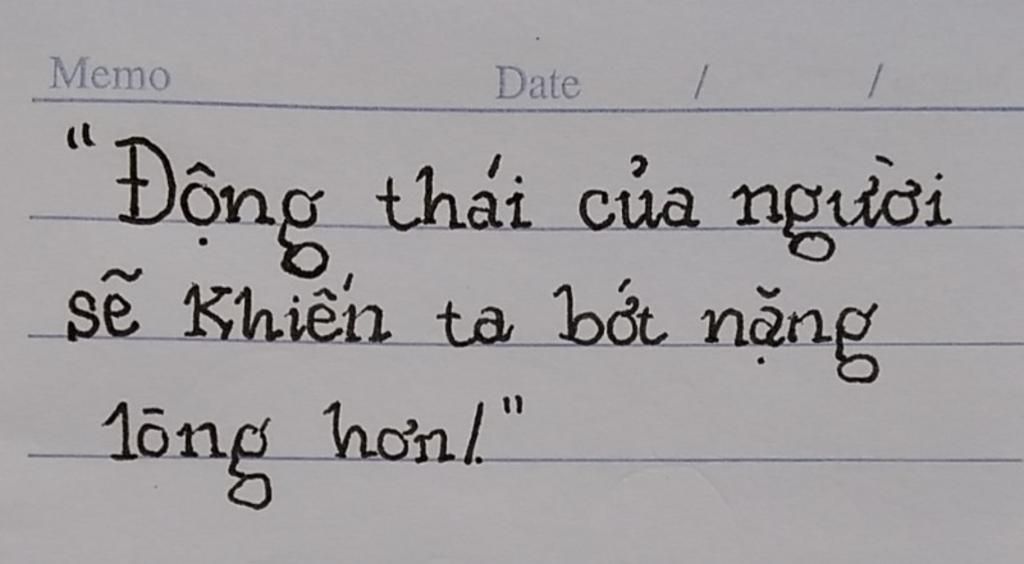 Memo Date / /
"Động thái của người
sẽ Khiến ta bớt nặng
lōng hơn!."